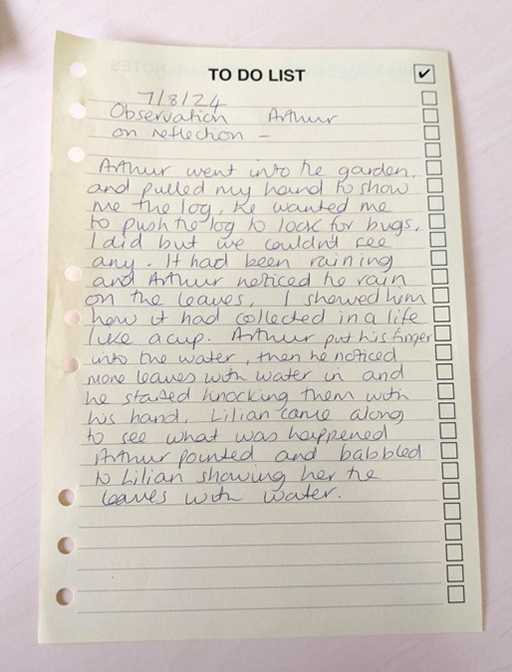 TO DO LIST
7/8/24
Observation Arthur
on reflection -
Arthur went into the garden,
and pulled my hand to show
me the log, he wanted me
to push the log to look for bugs,
I did but we couldn't see
any. It had been raining
and Arthur noticed he rain
on the leaves, I showed him
how it had collected in a life
like a cup. Arthur put his finger
into the water, then he noticed
more leaves with water in and
he started knocking them with
his hand, Lilian came along
to see what was happened
Arthur pointed and babbled
to Lilian showing her the
leaves with water.